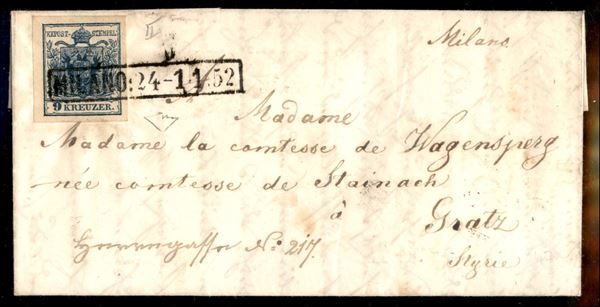 KKPOST-STEMPEL
9 KREUZER.
MILANO:24-11.52
Milano
Madame
Madame la comtesse de Wagensperg
née comtesse de Stainach
à
Gratz
Styrie
Herrengasse No: 217.